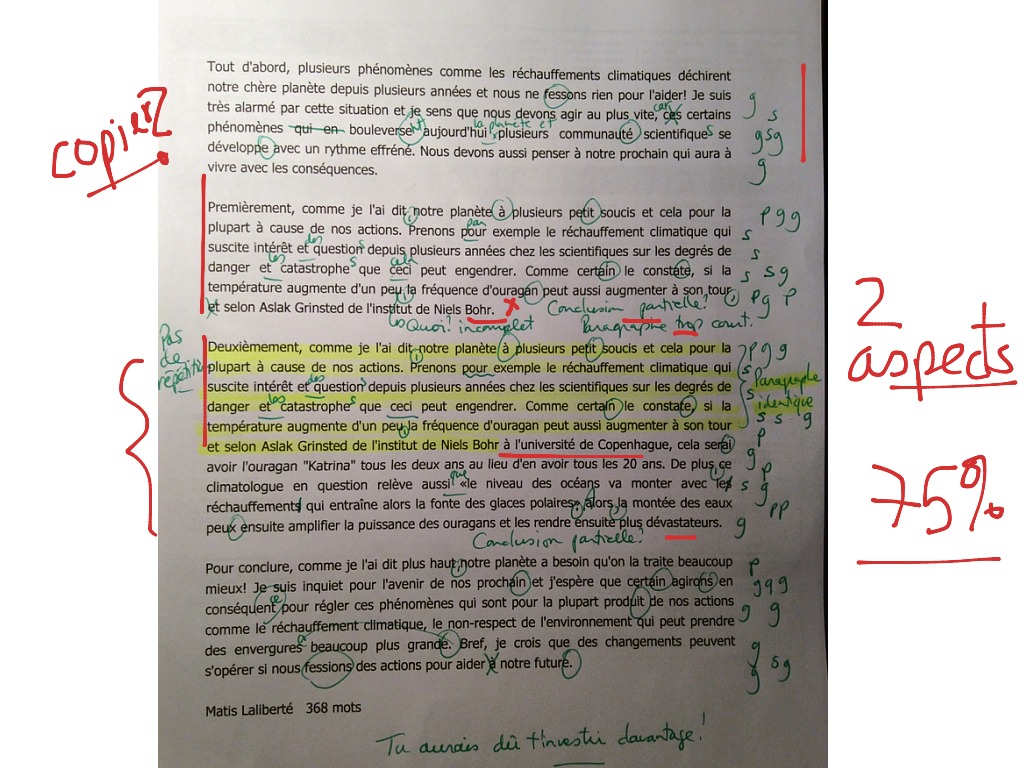 Tout d'abord, plusieurs phénomènes comme les réchauffements climatiques déchirent
notre chère planète depuis plusieurs années et nous ne fessons rien pour l'aider! Je suis
g
car
très alarmé par cette situation et je sens que nous devons agir au plus vite, ces certains
s
la planète et
phénomènes qui en bouleverse aujourd'hui plusieurs communauté scientifiques se
gsg
développe avec un rythme effréné. Nous devons aussi penser à notre prochain qui aura à
g
vivre avec les conséquences.
copier?
Premièrement, comme je l'ai dit notre planète à plusieurs petit soucis et cela pour la
p g g
par
plupart à cause de nos actions. Prenons pour exemple le réchauffement climatique qui
s
des
suscite intérêt et question depuis plusieurs années chez les scientifiques sur les degrés de
s
les s cela
danger et catastrophe que ceci peut engendrer. Comme certain le constate, si la
s s g
température augmente d'un peu la fréquence d'ouragan peut aussi augmenter à son tour
p g p
et selon Aslak Grinsted de l'institut de Niels Bohr. x Conclusion partielle?
Quoi? incomplet Paragraphe trop court.
2
aspects
75%
Pas
de
répétiti
Deuxièmement, comme je l'ai dit notre planète à plusieurs petit soucis et cela pour la
p g g
plupart à cause de nos actions. Prenons pour exemple le réchauffement climatique qui
s
des
suscite intérêt et question depuis plusieurs années chez les scientifiques sur les degrés de
s Paragraphe
les s
danger et catastrophe que ceci peut engendrer. Comme certain le constate, si la
identique
température augmente d'un peu la fréquence d'ouragan peut aussi augmenter à son tour
s s g
et selon Aslak Grinsted de l'institut de Niels Bohr à l'université de Copenhague, cela serai
p
avoir l'ouragan "Katrina" tous les deux ans au lieu d'en avoir tous les 20 ans. De plus ce
g p
que
climatologue en question relève aussi «le niveau des océans va monter avec les
s g
réchauffement qui entraîne alors la fonte des glaces polaires», alors la montée des eaux
pp
peux ensuite amplifier la puissance des ouragans et les rendre ensuite plus dévastateurs.
g
Conclusion partielle?
Pour conclure, comme je l'ai dit plus haut notre planète a besoin qu'on la traite beaucoup
p
mieux! Je suis inquiet pour l'avenir de nos prochain et j'espère que certain agirons en
g g g
ce
conséquent pour régler ces phénomènes qui sont pour la plupart produit de nos actions
g g
comme le réchauffement climatique, le non-respect de l'environnement qui peut prendre
des envergures beaucoup plus grande. Bref, je crois que des changements peuvent
g
s'opérer si nous fessions des actions pour aider à notre future.
g sg
Matis Laliberté 368 mots
Tu aurais dû t'investir davantage!